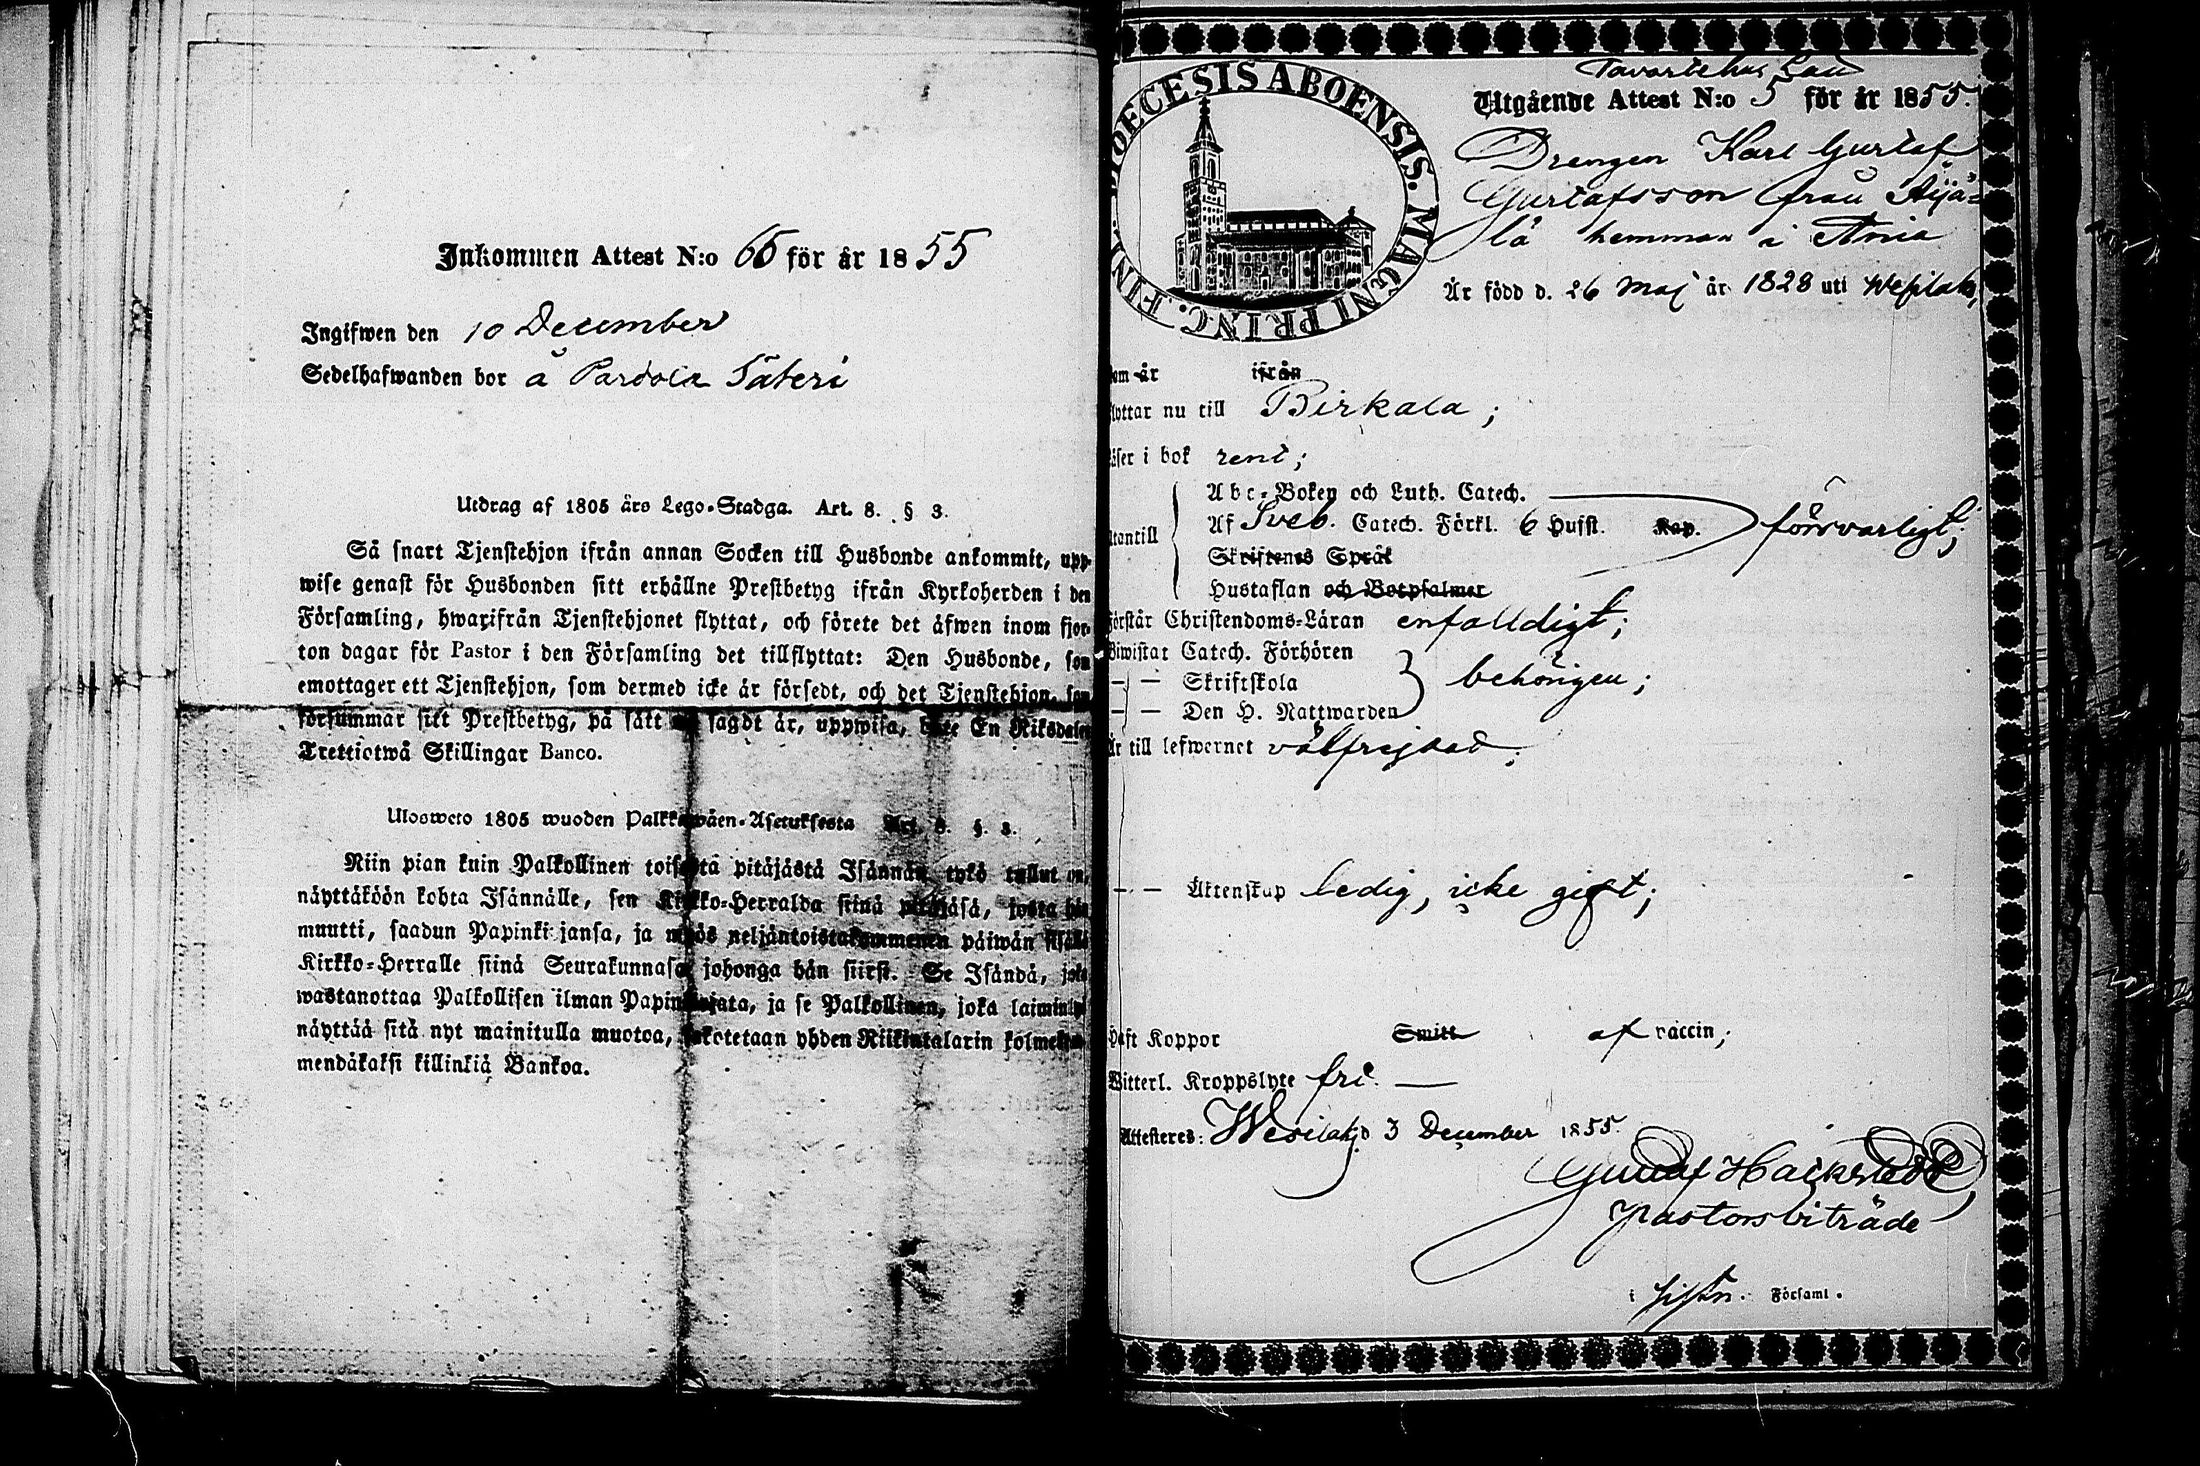 Inkommen Attest N:o 65 för år 1855
Ingifwen den 10 December
Sedelhafwanden bor å Pardola Säteri
Utdrag af 1805 års Lego-Stadga. Art. 8. § 3.
Så snart Tjenstehjon ifrån annan Socken till Husbonde ankommit, upp-
wise genast för Husbonden sitt erhållne Prestbetyg ifrån Kyrkoherden i den
Församling, hwarifrån Tjenstehjonet flyttat, och förete det äfwen inom fjor-
ton dagar för Pastor i den Församling det tillflyttat: Den Husbonde, som
emottager ett Tjenstehjon, som dermed icke är försedt, och det Tjenstehjon, som
försummar sitt Prestbetyg, på sätt sagdt är, uppwisa, böte En Riksdaler
Trettiotwå Skillingar Banco.
Ulosweto 1805 wuoden Palkkawäen-Asetuksesta Art. 8. §. 3.
Niin pian kuin Palkollinen toisesta pitäjästä Isännän tykö tullut on,
näyttäköön kohta Isännälle, sen Kirkko-Herralda siinä pitäjäsä, josta hän
muutti, saadun Papinkirjansa, ja myös neljäntoistakymmenen päiwän sisällä
Kirkko-Herralle siinä Seurakunnasa johonga hän siirsi. Se Isändä, joka
wastanottaa Palkollisen ilman Papinkirjata, ja se Palkollinen, joka laiminlyö
näyttää sitä nyt mainitulla muotoa, sakotetaan yhden Riikintalarin kolmekym-
mendäkaksi killinkiä Bankoa.
DIOECESIS ABOENSIS. MAGNI PRINC. FINL.
Tavastehus Län
Utgående Attest N:o 5 för år 1855.
Drengen Karl Gustaf
Gustafsson från Äijä-
lä hemman i Ania
Är född d. 26 Maj år 1828 uti Wesilaks,
om år ifrån
lyttar nu till Birkala;
äser i bok rent;
Abc-Boken och Luth. Catech.
Utantill Af Sveb. Catech. Förkl. 6 Hufst. Kap. försvarligt;
Skriftenes Språk
Hustaflan och Botpsalmer
Förstår Christendoms-Läran enfalldigt;
Biwistat Catech. Förhören
— — Skriftskola behörigen;
— — Den H. Nattwarden
Är till lefwernet välfrejdad;
— — Äktenskap ledig, icke gift;
Haft Koppor Smitt af vaccin;
Witterl. Kroppslyte fri. —
Attesteres: Wesilaks d 3 December 1855.
Gustaf Hacksted
Pastorsbiträde
i Församl.